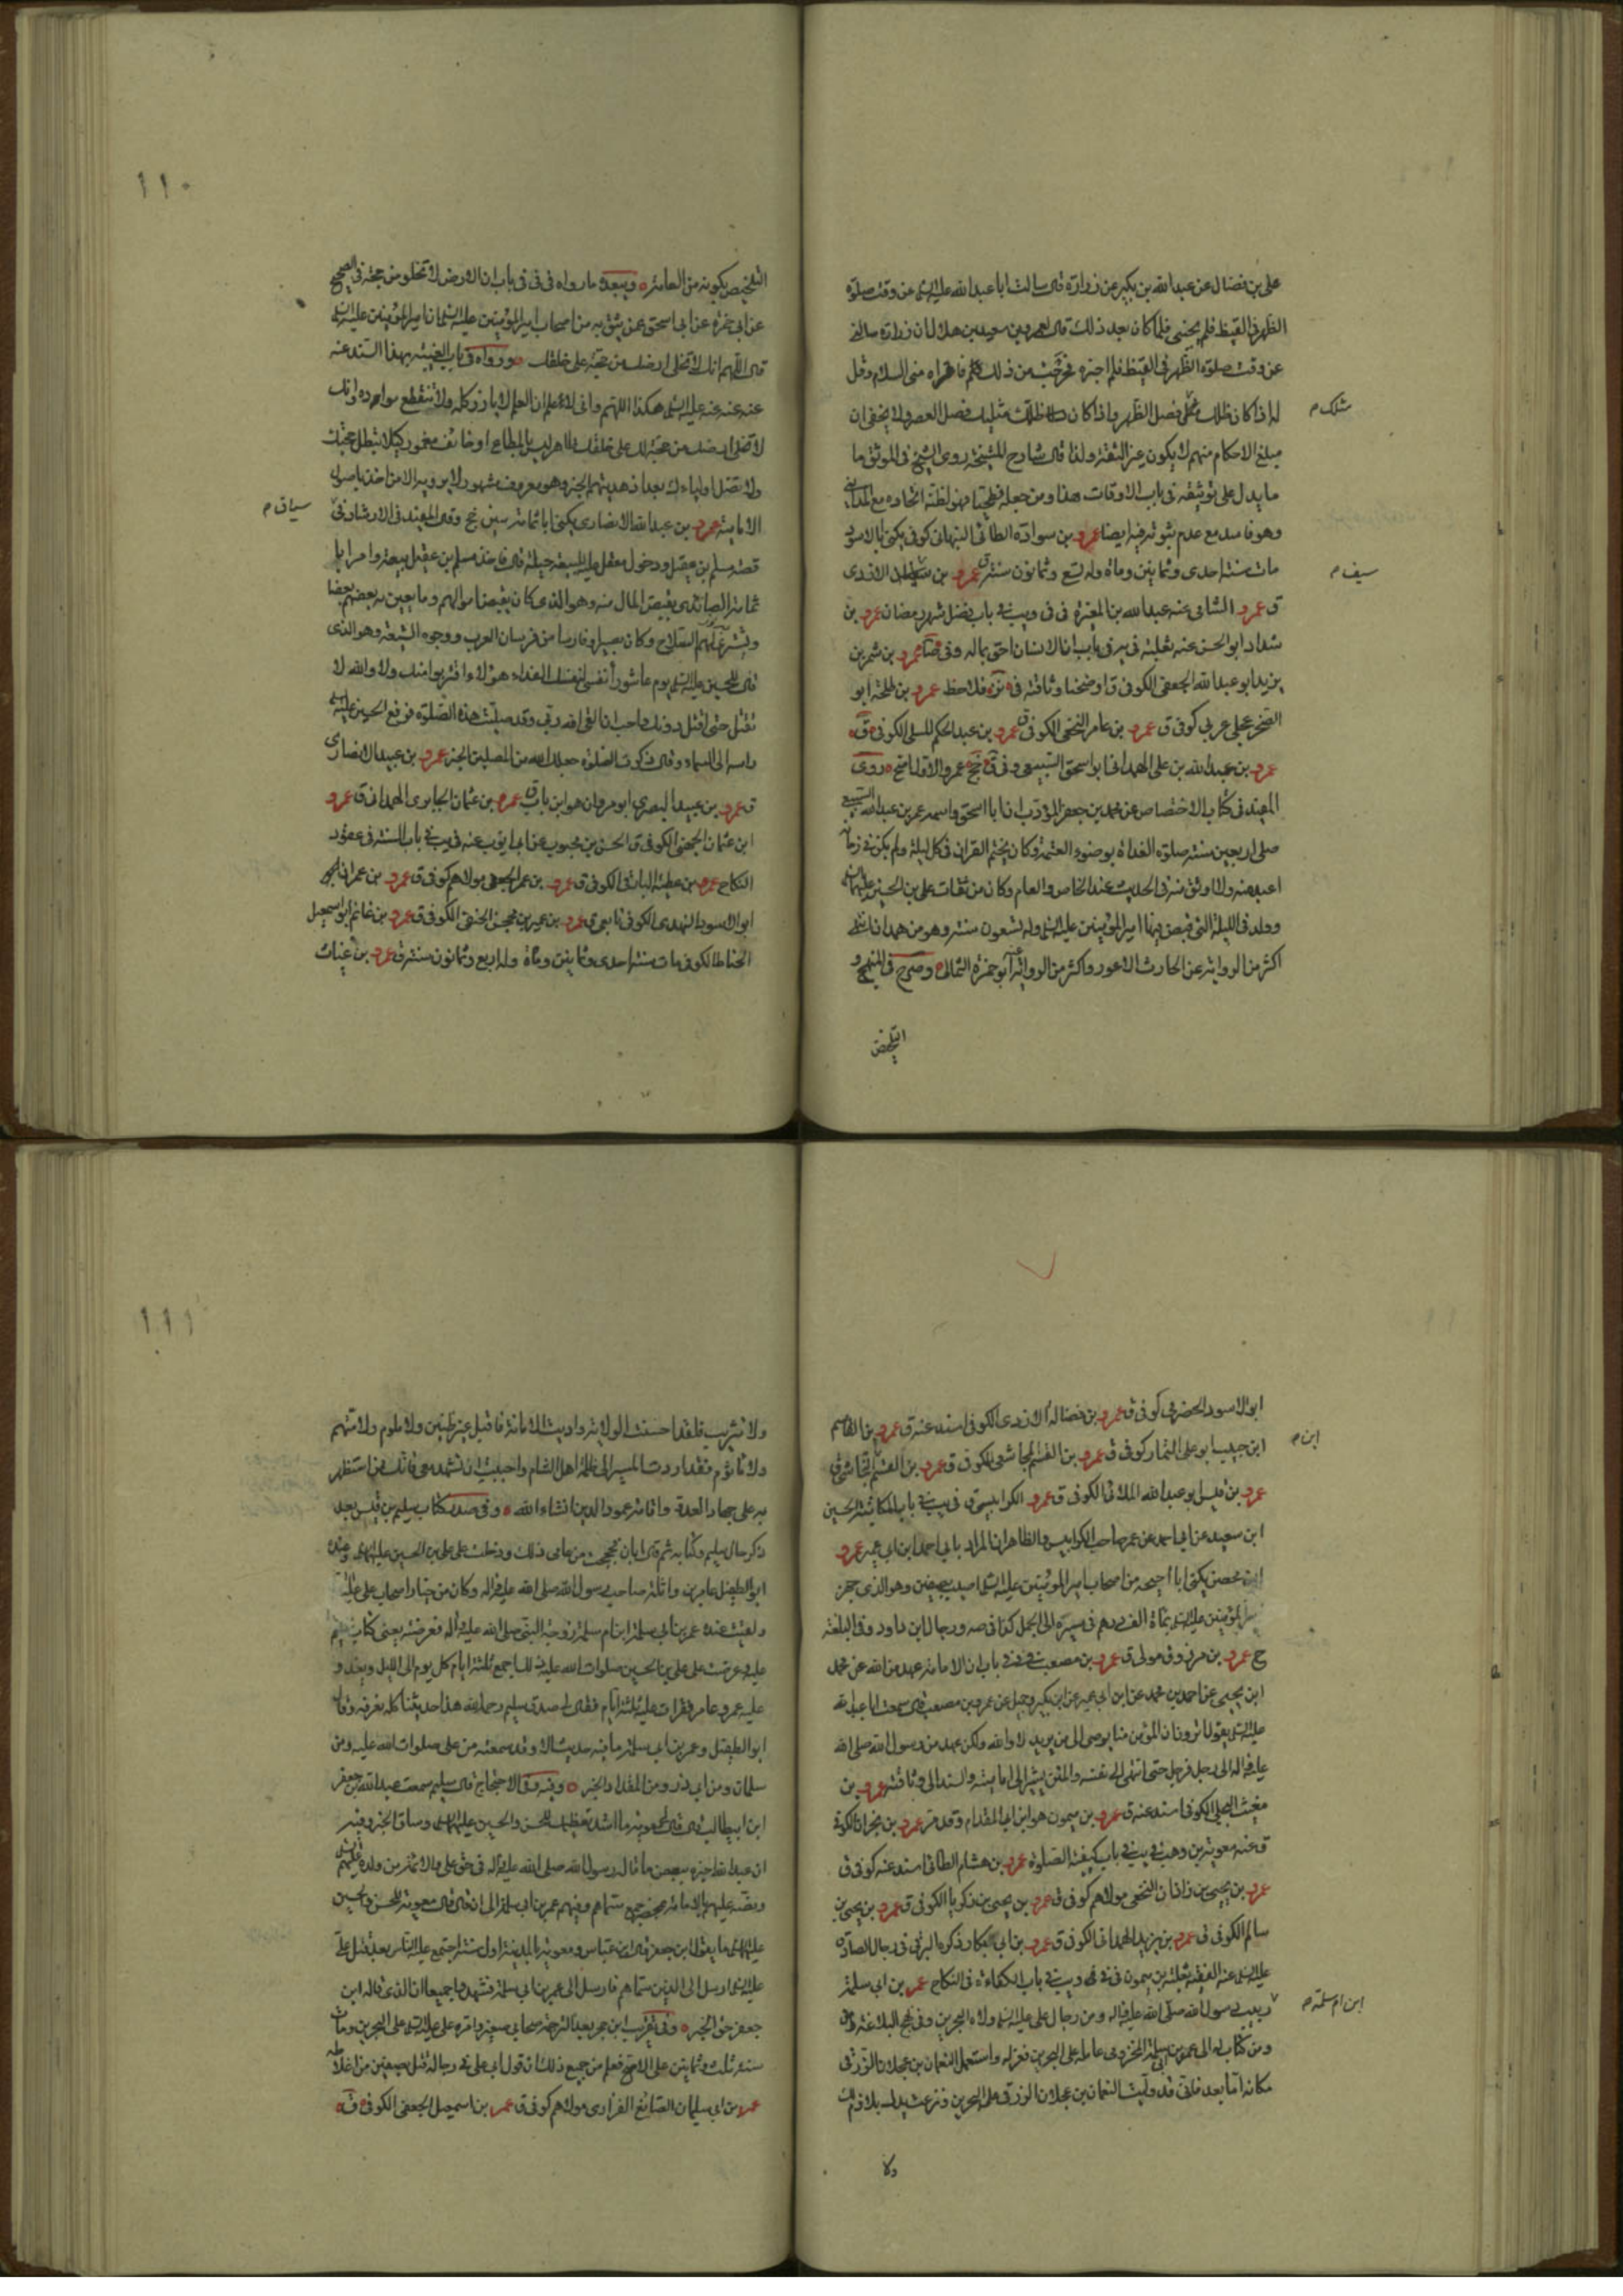 على بن فضال عن عبد الله بن بكير عن زرارة قال سالت ابا عبد الله عليه السلم عن وقت صلوة
الظهر فى القيظ فلم يجبنى فلما كان بعد ذلك قال لعمرو بن سعيد بن هلال ان زرارة سالنى
عن وقت صلوة الظهر فى القيظ فلم اخبره فحرجت من ذلك فاقراه منى السلام وقل
له اذا كان ظلك مثلك فصل الظهر واذا كان ظلك مثليك فصل العصر ولا يخفى ان
مثلك م
مبلغ الاحكام منهم لا يكون غير الثقة ولذا قال شارح المشيخة روى الشيخ فى الموثق ما
ما يدل على توثيقه فى باب الاوقات هذا ومن جعله فطحيا فهو لظنه اتحاده مع المداينى
وهو فاسد مع عدم ثبوته فيه ايضا عمرو بن سوادة الطائى النبهانى كوفى يكنى بالاسود
مات سنة احدى وثمانين ومأة وله تسع وثمانون سنة ق عمرو بن الازدى
سيف م
ق عمرو الشامى عنه عبد الله بن المغيرة فى فى ويب فى باب فضل شهر رمضان عمرو بن
شداد ابو الحسن عنه ثعلبة فى يب فى باب ان الانسان احق بماله وفى عمرو بن شمر بن
يزيد ابو عبد الله الجعفى الكوفى ق اوضحنا وثاقته فى فلاحظ عمرو بن طلحة ابو
الصخر عجلى عربى كوفى ق عمرو بن عامر النخعى الكوفى ق عمرو بن عبد الحكم السلمى الكوفى ق
عمرو بن عبد الله بن على الهمدانى ابو اسحق السبيعى وفى عمرو والاول اصح روى
المفيد فى كتاب الاختصاص عن محمد بن جعفر المؤدب ان ابا اسحق واسمه عمرو بن عبد الله السبيعى
صلى اربعين سنة صلوة الغداة بوضوء العتمة وكان يختم القران فى كل ليلة ولم يكن فى زمانه
اعبد منه ولا اوثق منه فى الحديث عند الخاص والعام وكان من ثقات على بن الحسين عليهما السلم
وولد فى الليلة التى قبض فيها امير المؤمنين عليه السلم وله تسعون سنة وهو من همدان
اكثر من الرواية عن الحارث الاعور واكثر من الرواية عنه ابو حمزة الثمالى وصرح فى المنهج و
التلخيص
١١٠
التلخيص بكونه من العامة ويبعده ما رواه فى فى فى باب ان الارض لا تخلو من حجة فى الصحيح
عن ابى حمزة عن ابى اسحق عمن يثق به من اصحاب امير المؤمنين عليه السلم ان امير المؤمنين عليه السلم
قال اللهم انك لا تخلى ارضك من حجة على خلقك ورواه فى باب الغيبة بهذا السند عنه
عنه عنه عنه عليه السلم هكذا اللهم وانى لاعلم ان العلم لا يارز كله ولا تنقطع مواده وانك
لا تخلى ارضك من حجة لك على خلقك ظاهر ليس بالمطاع او خائف مغمور كيلا تبطل حجتك
ولا تضل اولياءك بعد اذ هديتهم الخبر وهو معروف مشهور لا يرويه الا من اخذ باصول
الامامية عمرو بن عبد الله الانصارى يكنى ابا ثمامة سين جخ وقال المفيد فى الارشاد فى
سياق م
قصة مسلم بن عقيل ودخول معقل عليه قال فاخذ مسلم بن عقيل بيعته وامر ابا
ثمامة الصائدى بقبض المال منه وهو الذى كان يقبض اموالهم وما يعين به بعضهم بعضا
ويشترى لهم السلاح وكان بصيرا وفارسا من فرسان العرب ووجوه الشيعة وهو الذى
قال للحسين عليه السلم يوم عاشورا نفسى لنفسك الفداء هؤلاء اقتربوا منك ولا والله لا
تقتل حتى اقتل دونك واحب ان القى الله ربى وقد صليت هذه الصلوة فرفع الحسين عليه السلم
راسه الى السماء وقال ذكرت الصلوة جعلك الله من المصلين الخبر عمرو بن عبيد الانصارى
ق عمرو بن عبيد البصرى ابو مروان هو ابن باب ق عمرو بن عثمان الجابرى الهمدانى ق عمرو
ابن عثمان الجهنى الكوفى ق الحسن بن محبوب عن ابى ايوب عنه فى يب فى باب السنة فى عقود
النكاح عمرو بن عطية البانى الكوفى ق عمرو بن عمر الجعفى مولاهم كوفى ق عمرو بن عمران
ابو الاسود النهدى الكوفى تابعى ق عمرو بن عمير بن محجن الحنفى الكوفى ق عمرو بن غانم ابو اسمعيل
الحناط الكوفى مات سنة احدى وثمانين ومأة وله اربع وثمانون سنة ق عمرو بن غياث
ابو الاسود الحضرمى كوفى ق عمرو بن فضالة الازدى الكوفى اسند عنه ق عمرو بن القاسم
ابن حبيب ابو على التمار كوفى ق عمرو بن القسم المجاشعى الكوفى ق عمرو بن القسم
ابن م
عمرو بن قيس ابو عبد الله الملائى الكوفى ق عمرو الكرابيسى ق فى يب فى باب المكاتبة الحسين
ابن سعيد عن ابى احمد عن عمر صاحب الكرابيس والظاهر ان المراد بابى احمد ابن ابى عمير عمرو
ابن محصن يكنى ابا احيحة من اصحاب امير المؤمنين عليه السلم اصيب بصفين وهو الذى جهز
امير المؤمنين عليه السلم بمأة الف درهم فى مسيره الى الجمل كذا فى صه ورجال ابن داود وفى البلغة
ح عمرو بن مرزوق مولى ق عمرو بن مصعب فى فى فى باب ان الامامة عهد من الله عن محمد
ابن يحيى عن احمد بن محمد عن ابن ابى عمير عن ابن بكير وجميل عن عمرو بن مصعب قال سمعت ابا عبد الله
عليه السلم يقول اترون ان الموصى منا يوصى الى من يريد لا والله ولكن عهد من رسول الله صلى الله
عليه واله الى رجل فرجل حتى انتهى الى نفسه والمتن يشير الى اماميته والسند الى وثاقته عمرو بن
مغيث البجلى الكوفى اسند عنه ق عمرو بن ميمون هو ابن ابى المقدام وقد مر عمرو بن نجران الكوفى
ق عنه معوية بن وهب فى يب فى باب كيفية الصلوة عمرو بن هشام الطائى اسند عنه كوفى ق
عمرو بن يحيى بن زاذان النخعى مولاهم كوفى ق عمرو بن يحيى بن زكريا الكوفى ق عمرو بن يحيى بن
سالم الكوفى ق عمرو بن يزيد الهمدانى الكوفى ق عمرو بن ابى بكار ذكره البرقى فى رجال الصادق
عليه السلم عنه الفقيه ثعلبة بن ميمون فى فى ويب فى باب الكفاءة فى النكاح عمر بن ابى سلمة
ربيب رسول الله صلى الله عليه واله ومن رجال على عليه السلم ولاه البحرين وفى نهج البلاغة
ابن ام سلمة م
ومن كتاب له الى عمر بن ابى سلمة المخزومى عامله على البحرين فعزله واستعمل النعمان بن عجلان الزرقى
مكانه اما بعد فانى قد وليت النعمان بن عجلان الزرقى على البحرين ونزعت يدك بلا ذم لك
ولا
١١١
ولا تثريب فلقد احسنت الولاية واديت الامانة فاقبل غير ظنين ولا ملوم ولا متهم
ولا ماثوم فقد اردت المسير الى ظلمة اهل الشام واحببت ان تشهد معى فانك ممن استظهر
به على جهاد العدو واقامة عمود الدين انشاء الله وفى صدر كتاب سليم بن قيس بعد
ذكر حال سليم وكتابه ثم قال ابان فحججت من عامى ذلك ودخلت على على بن الحسين عليه السلم وعنده
ابو الطفيل عامر بن واثلة صاحب رسول الله صلى الله عليه واله وكان من خيار اصحاب على عليه السلم
ولقيت عنده عمر بن ابى سلمة ابن ام سلمة زوجة النبى صلى الله عليه واله فعرضته يعنى كتاب سليم
عليه وعرضت على على بن الحسين صلوات الله عليه ذلك اجمع ثلثة ايام كل يوم الى الليل ويغدو
عليه عمر وعامر فقرات عليه ثلثة ايام فقال لى صدق سليم رحمه الله هذا حديثنا كله نعرفه وقال
ابو الطفيل وعمر بن ابى سلمة ما فيه حديث الا وقد سمعته من على صلوات الله عليه ومن
سلمان ومن ابى ذر ومن المقداد الخبر وفيه وفى الاحتجاج قال سليم سمعت عبد الله بن جعفر
ابن ابيطالب قال قال لى معوية ما اشد تعظيمك للحسن والحسين عليهما السلم وساق الخبر وفيه
ان عبد الله اخبره ببعض ما قال رسول الله صلى الله عليه واله فى حق على والائمة من ولده عليهم السلم
ونصه عليهم بالامامة بمحضر جمع سماهم وفيهم عمر بن ابى سلمة الى ان قال قال معوية للحسن والحسين
عليهما السلم ما يقول ابن جعفر قال ابن عباس ومعوية بالمدينة اول سنة اجتمع عليه الناس بعد قتل على
عليه السلم ارسل الى الذين سماهم فارسل الى عمر بن ابى سلمة فشهدوا جميعا ان الذى قاله ابن
جعفر حق الخبر وفى تقريب ابن حجر بعد الترجمة صحابى صغير وامره على عليه السلم على البحرين ومات
سنة ثلث وثمانين على الاصح فعلم من جميع ذلك ان قول ابى على فى رجاله قتل بصفين من اغلاطه
عمر بن ابى سليمان الصائغ الفزارى مولاهم كوفى ق عمر بن اسمعيل الجعفى الكوفى ق